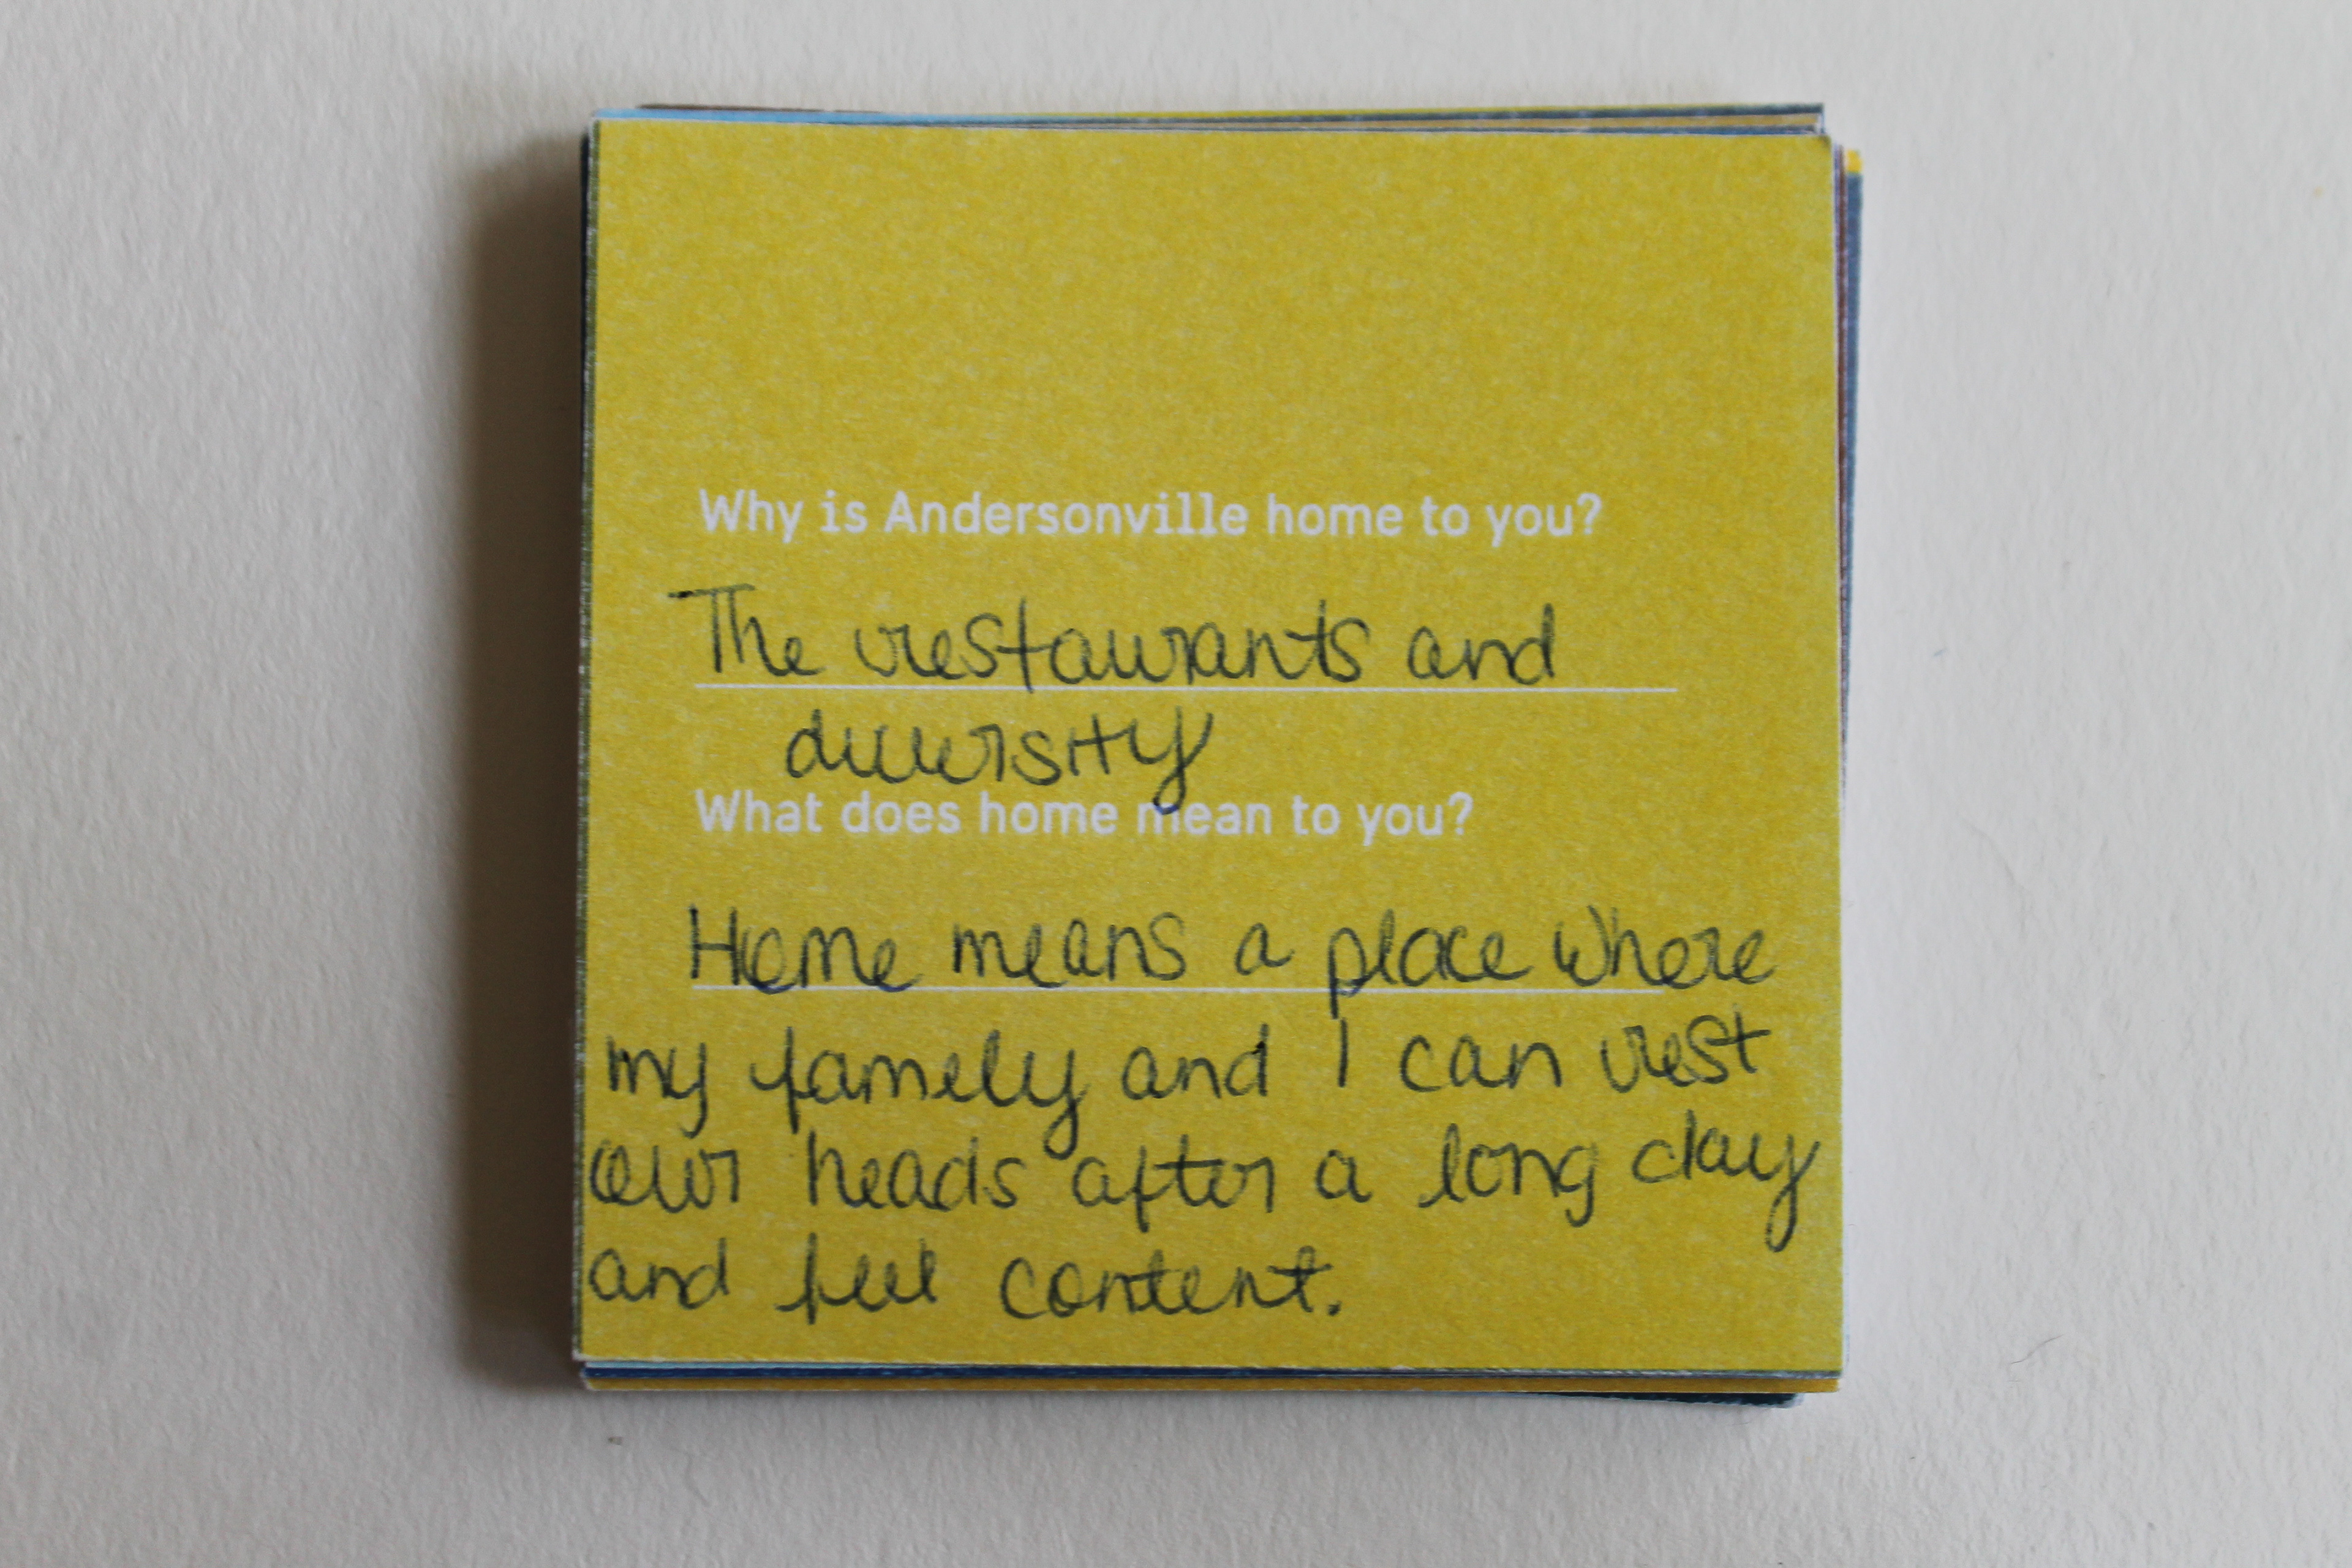 Why is Andersonville home to you?
The restaurants and
diversity
What does home mean to you?
Home means a place where
my family and I can rest
our heads after a long day
and feel content.